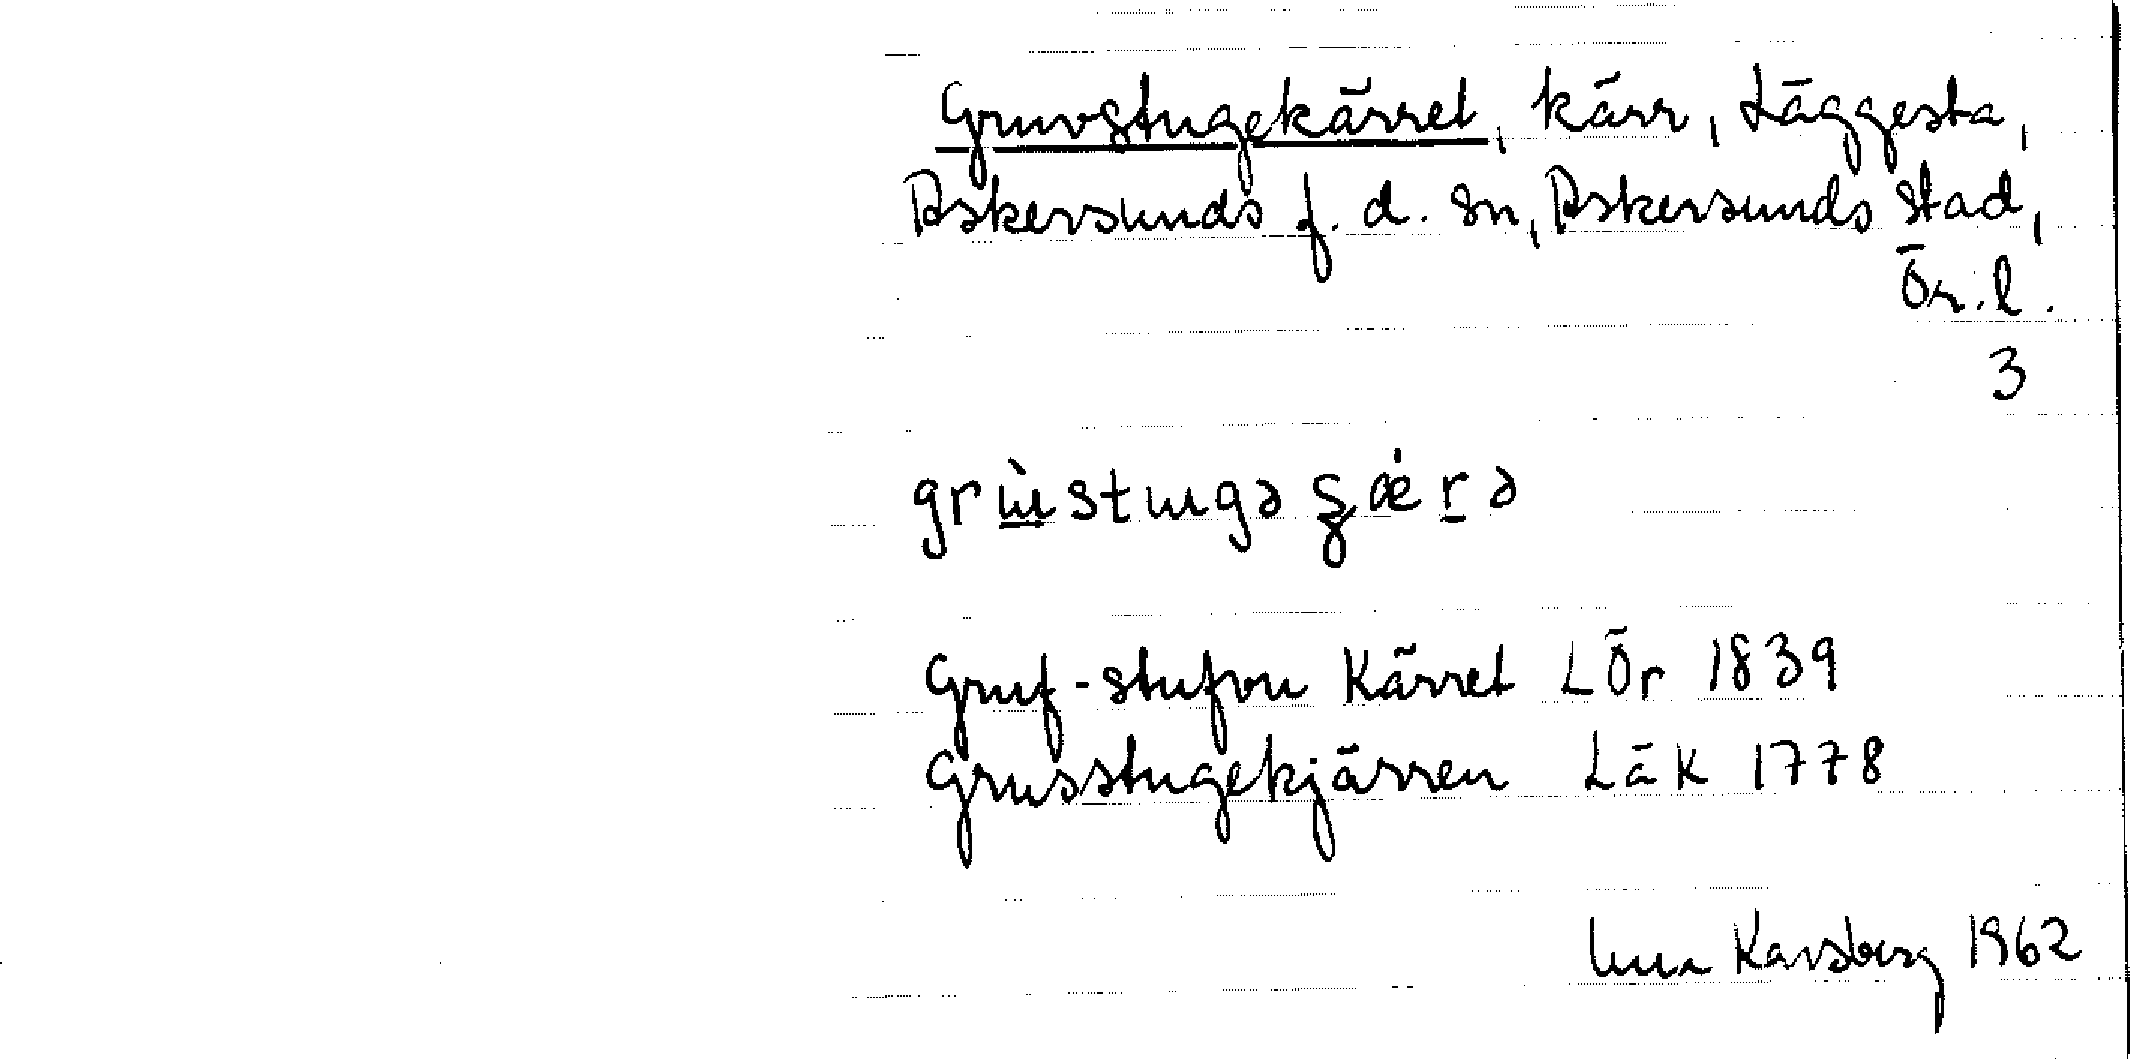 Gruvstugekärret, kärr, Läggesta,
Askersunds f. d. sn, Askersunds stad,
Ör. l.
3
grɯ̲̀stɯgə ȿǽr̲ə
Gruf-stufvu Kärret LÖr 1839
Grusstugekjärren LäK 1778
Karsberg 1962